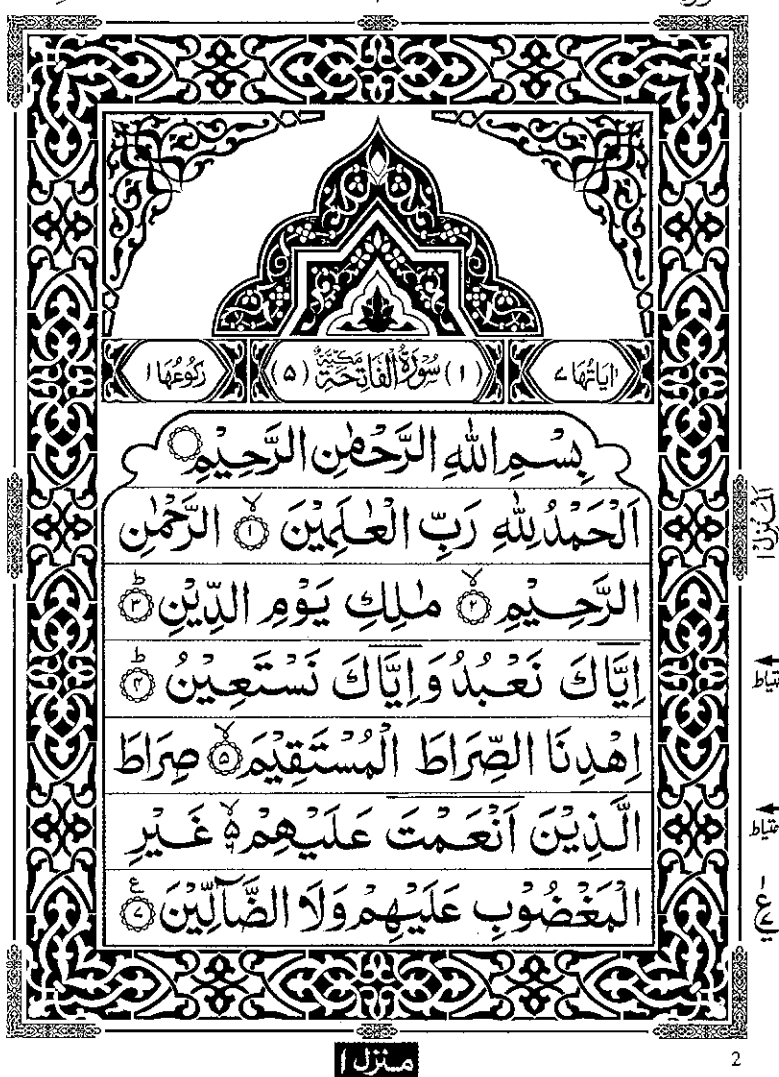 اٰيَاتُهَا ٧ (١) سُوْرَةُ الْفَاتِحَةِ مَكِّيَّةٌ (٥) رُكُوْعُهَا ١
بِسْمِ اللّٰهِ الرَّحْمٰنِ الرَّحِيْمِ
اَلْحَمْدُ لِلّٰهِ رَبِّ الْعٰلَمِيْنَ ۙ﴿١﴾ الرَّحْمٰنِ
الرَّحِيْمِ ۙ﴿٢﴾ مٰلِكِ يَوْمِ الدِّيْنِ ؕ﴿٣﴾
اِيَّاكَ نَعْبُدُ وَاِيَّاكَ نَسْتَعِيْنُ ؕ﴿٤﴾
اِهْدِنَا الصِّرَاطَ الْمُسْتَقِيْمَ ۙ﴿٥﴾ صِرَاطَ
الَّذِيْنَ اَنْعَمْتَ عَلَيْهِمْ ۙ۵ غَيْرِ
الْمَغْضُوْبِ عَلَيْهِمْ وَلَا الضَّآلِّيْنَ ﴿٧﴾ع
اَلْمَنْزِل ١
منزل ١
2